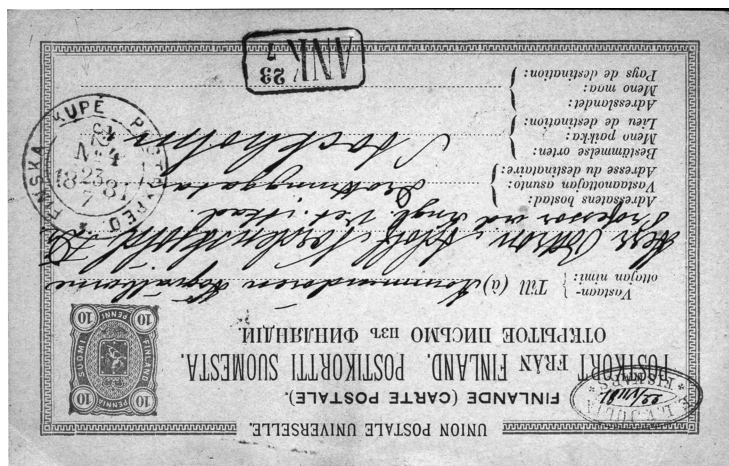 UNION POSTALE UNIVERSELLE.
FINLANDE (CARTE POSTALE).
POSTKORT FRÅN FINLAND. POSTIKORTTI SUOMESTA.
ОТКРЫТОЕ ПИСЬМО изъ ФИНЛЯНДІИ.
10 PENNI 10
SUOMI FINLAND
10 PENNIÄ 10
Vastaan-
ottajan nimi:
Till (à)
Herr
Nordenskjöld
Professor vid Kngl. Vet. Akad.
Adressatens bostad:
Vastaanottajan asunto:
Adresse du destinataire:
Drottninggatan
Bestämmelse orten:
Meno paikka:
Lieu de destination:
Stockholm
Adresslandet:
Meno maa:
Pays de destination:
FINSKA KUPÉ POSTEXPED.
No 4
23
18 81
7
ANK
23 7